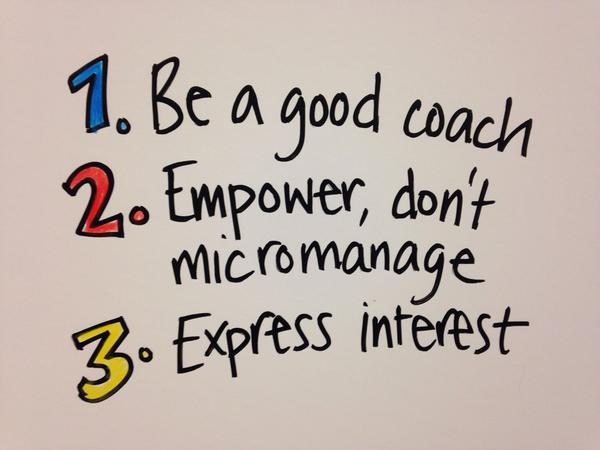 1. Be a good coach
2. Empower, don't
micromanage
3. Express interest